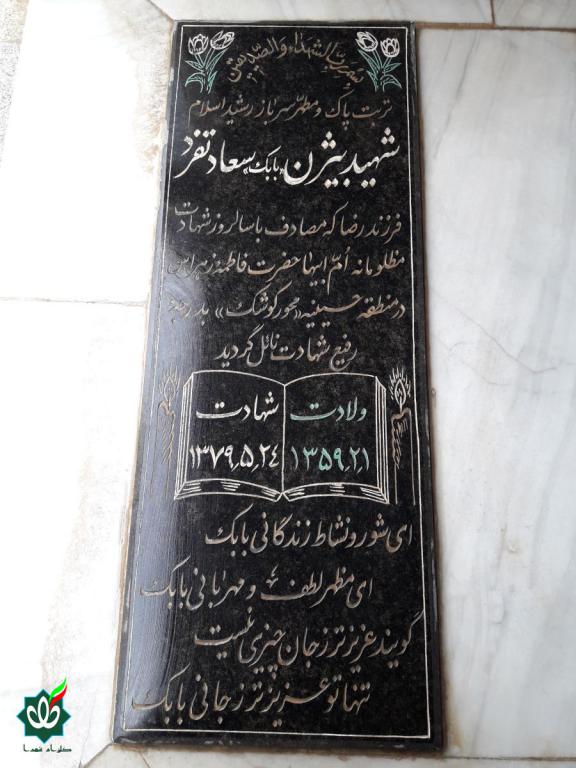 بسم رب الشهداء والصدیقین
تربت پاک و مطهر سرباز رشید اسلام
شهید بیژن «بابک» سعادتفرد
فرزند رضا که مصادف با سالروز شهادت
مظلومانه اُمّ ابیها حضرت فاطمه زهرا (س)
در منطقه حسینیه «محور کوشک» بدرجه
رفیع شهادت نائل گردید
ولادت
۱۳۵۹٫۲٫۱
شهادت
۱۳۷۹٫۵٫۲٤
ای شور و نشاط زندگانی بابک
ای مظهر لطف و مهربانی بابک
گویند عزیزتر ز جان چیزی نیست
تنها تو عزیزتر ز جانی بابک